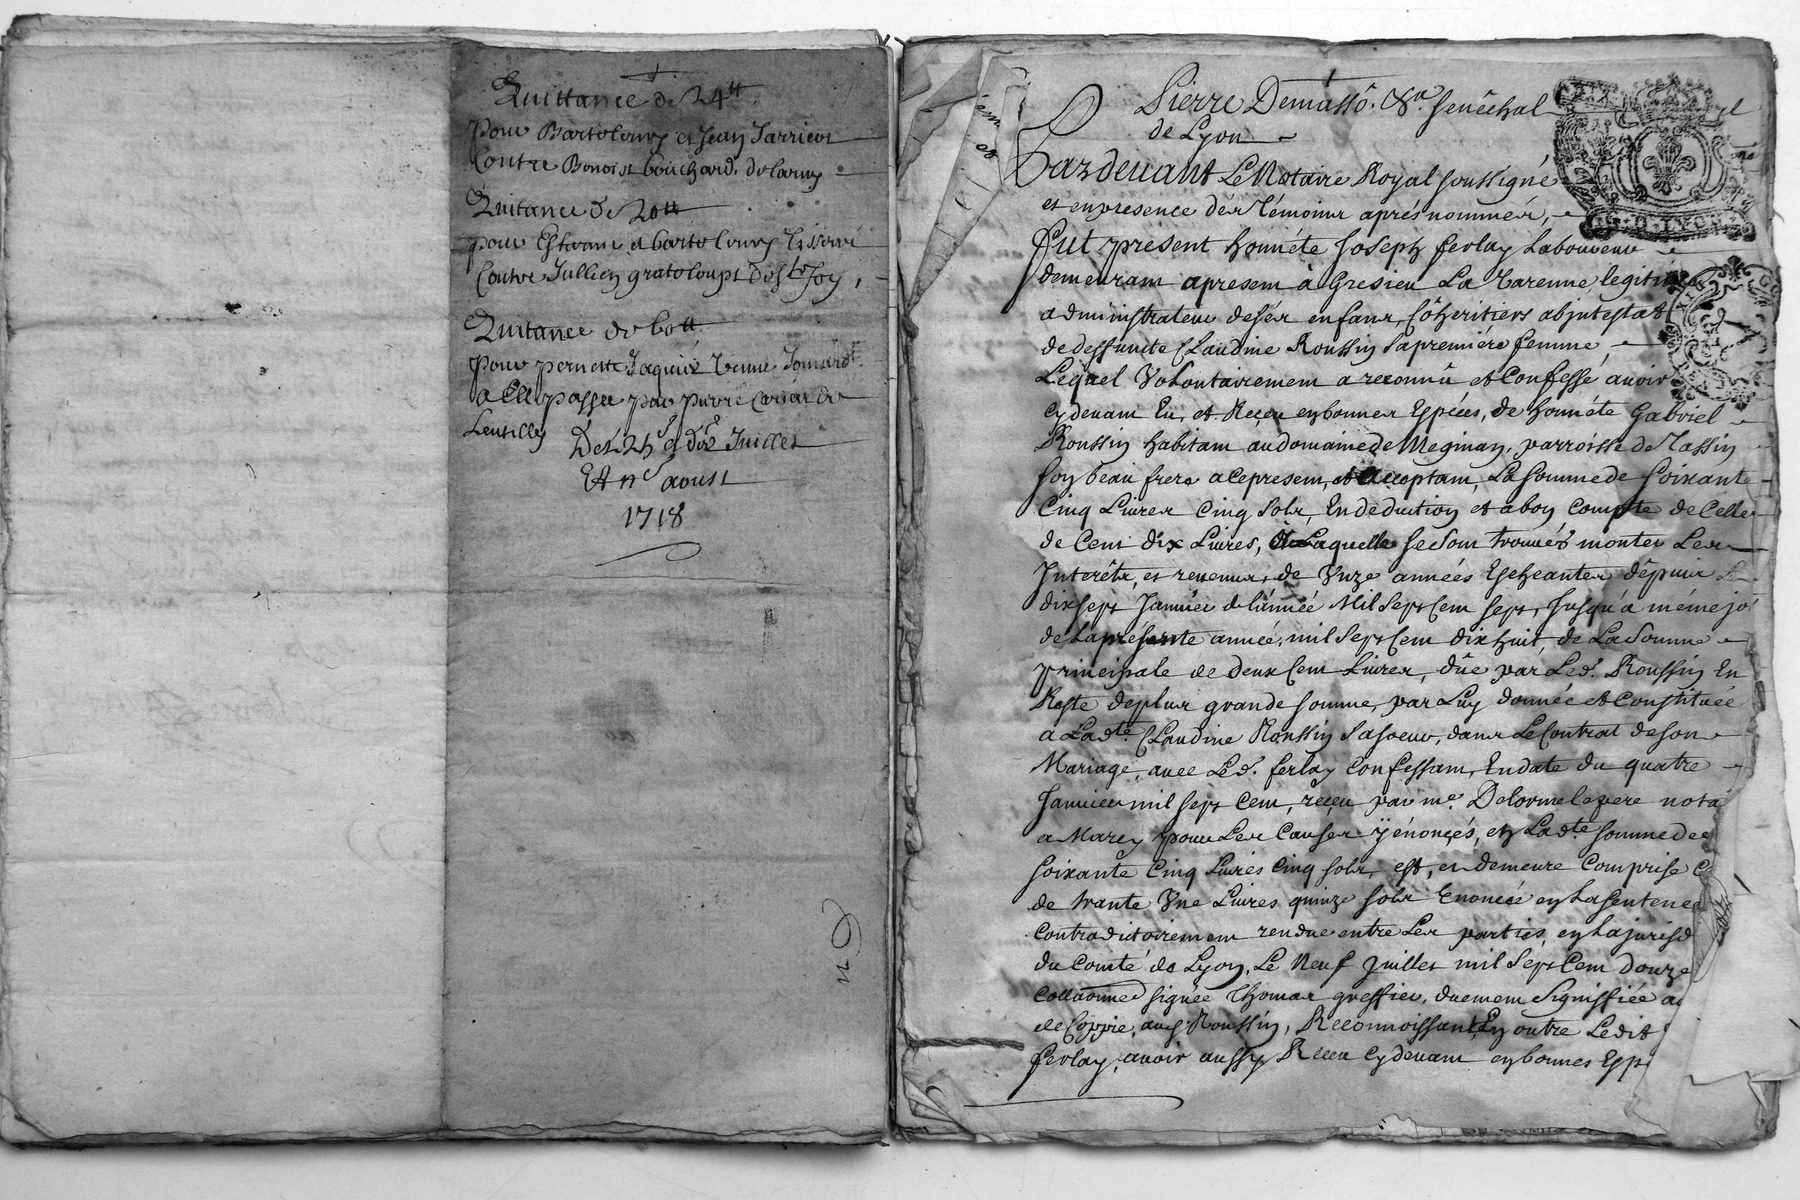 Quittance de 24tt
pour Bartolomy et Jean Jarricot
Contre Benoist bouchard. de larny
Quitance de 20tt
pour Estienne et bartolomy
Contre Jullien gratoloup de Ste foy,
Quitance de 60tt
pour pernette Jaquier veuve
a Elle passée par pierre de
Lentilly
Des 25e et dre Juillet
Et 11e aoust
1718
Pierre Demassô, Sen senéchal
de Lyon
Pardevant Le Notaire Royal soussigné
et en presence des Témoins aprés nommés,
fut present honnéte Joseph ferlay Laboureur
demeurant apresent à Gresieu La Varenne, legit
administrateur de ses enfans, Côheritiers abjntestat
de deffuncte Claudine Roussin sa premiére femme,
Lequel Volontairement a reconnû et Confessé avoir
cydevant Eu, et Reçeu en bonnes Espéces, de honnéte Gabriel
Roussin habitant au domaine de Meginan, parroisse de Tassin
son beau frere a ce present, et acceptant, La somme de soixante
Cinq Livres Cinq sols, En deduction et a bon Compte de Celle
de Cent dix Livres, à Laquelle se sont trouvés monter Les
Jnterêts, et revenus, de Vnze années Escheantes dêpuis Le
dix sept Janvier de l'année Mil Sept Cent sept, Jusqu'à méme jo
de La présente année, mil Sept Cent dix huit, de La Somme
principale de deux Cent Livres, dûe par Led. Roussin En
Reste de plus grande somme, par Luy donnée et Constituée
a Ladte Claudine Roussin sa soeur, dans Le Contrat de son
Mariage, avec Led. ferlay Confessant, En date du quatre
Janvier mil sept Cent, reçeu par me. Delorme le pere nota
a Marcy pour Les Causes ÿ énonçés, en Ladte somme de
soixante Cinq Livres Cinq sols, est, et demeure Comprise C
de trante Vne Livres quinze sols Enoncée en La sentence
Contradictoirement rendue entre Les parties, en La jurisd
du Comté de Lyon, Le Neuf Juillet mil Sept Cent douze
Collaonné signée Thomas greffier, duement Signiffiée a
de Coppie, aud Roussin, Reconnoissant, En outre Ledit
ferlay, avoir aussy Reçeu cydevant en bonnes Esp